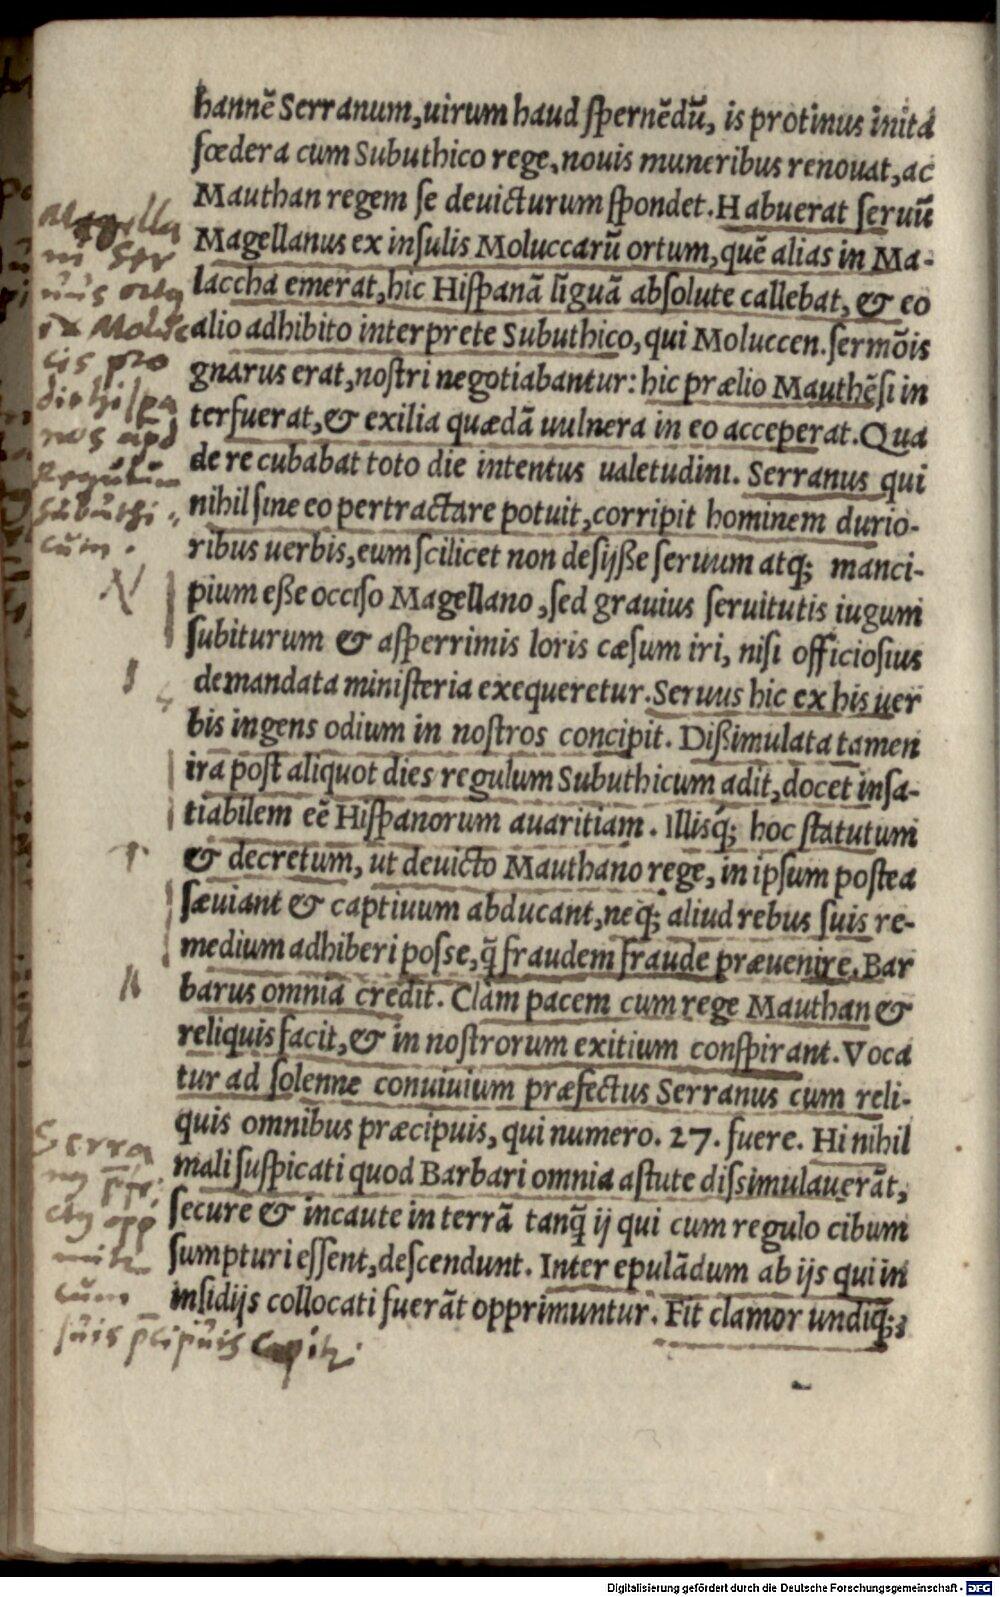 hannē Serranum, uirum haud spernēdū, is protinus inita
fœdera cum Subuthico rege, nouis muneribus renouat, ac
Mauthan regem se deuicturum spondet. Habuerat seruū
Magellanus ex insulis Moluccarū ortum, quē alias in Ma-
laccha emerat, hic Hispanā līguā absolute callebat, & eo
alio adhibito interprete Subuthico, qui Moluccen. sermōis
gnarus erat, nostri negotiabantur: hic prælio Mauthēsi in
terfuerat, & exilia quædā uulnera in eo acceperat. Qua
de re cubabat toto die intentus ualetudini. Serranus qui
nihil sine eo pertractare potuit, corripit hominem durio-
ribus uerbis, eum scilicet non desijße seruum atq; manci-
pium eße occiso Magellano, sed grauius seruitutis iugum
subiturum & asperrimis loris cæsum iri, nisi officiosius
demandata ministeria exequeretur. Seruus hic ex his uer
bis ingens odium in nostros concipit. Dißimulata tamen
ira post aliquot dies regulum Subuthicum adit, docet insa-
tiabilem eē Hispanorum auaritiam. Illisq́; hoc statutum
& decretum, ut deuicto Mauthano rege, in ipsum postea
sæuiant & captiuum abducant, neq; aliud rebus suis re-
medium adhiberi posse, q̄ fraudem fraude præuenire. Bar
barus omnia credit. Clam pacem cum rege Mauthan &
reliquis facit, & in nostrorum exitium conspirant. Voca
tur ad solenne conuiuium præfectus Serranus cum reli-
quis omnibus præcipuis, qui numero. 27. fuere. Hi nihil
mali suspicati quod Barbari omnia astute dissimulauerāt,
secure & incaute in terrā tanq̄ ij qui cum regulo cibum
sumpturi essent, descendunt. Inter epulādum ab ijs qui in
insidijs collocati fuerāt opprimuntur. Fit clamor undiq́;;
Magella
ni Ser
uus ortus
ex Moluc
cis pro
dit hispa
nos apd
Regulum
Subuthi
cum.
Serra
cum
suis
Digitalisierung gefördert durch die Deutsche Forschungsgemeinschaft - DFG